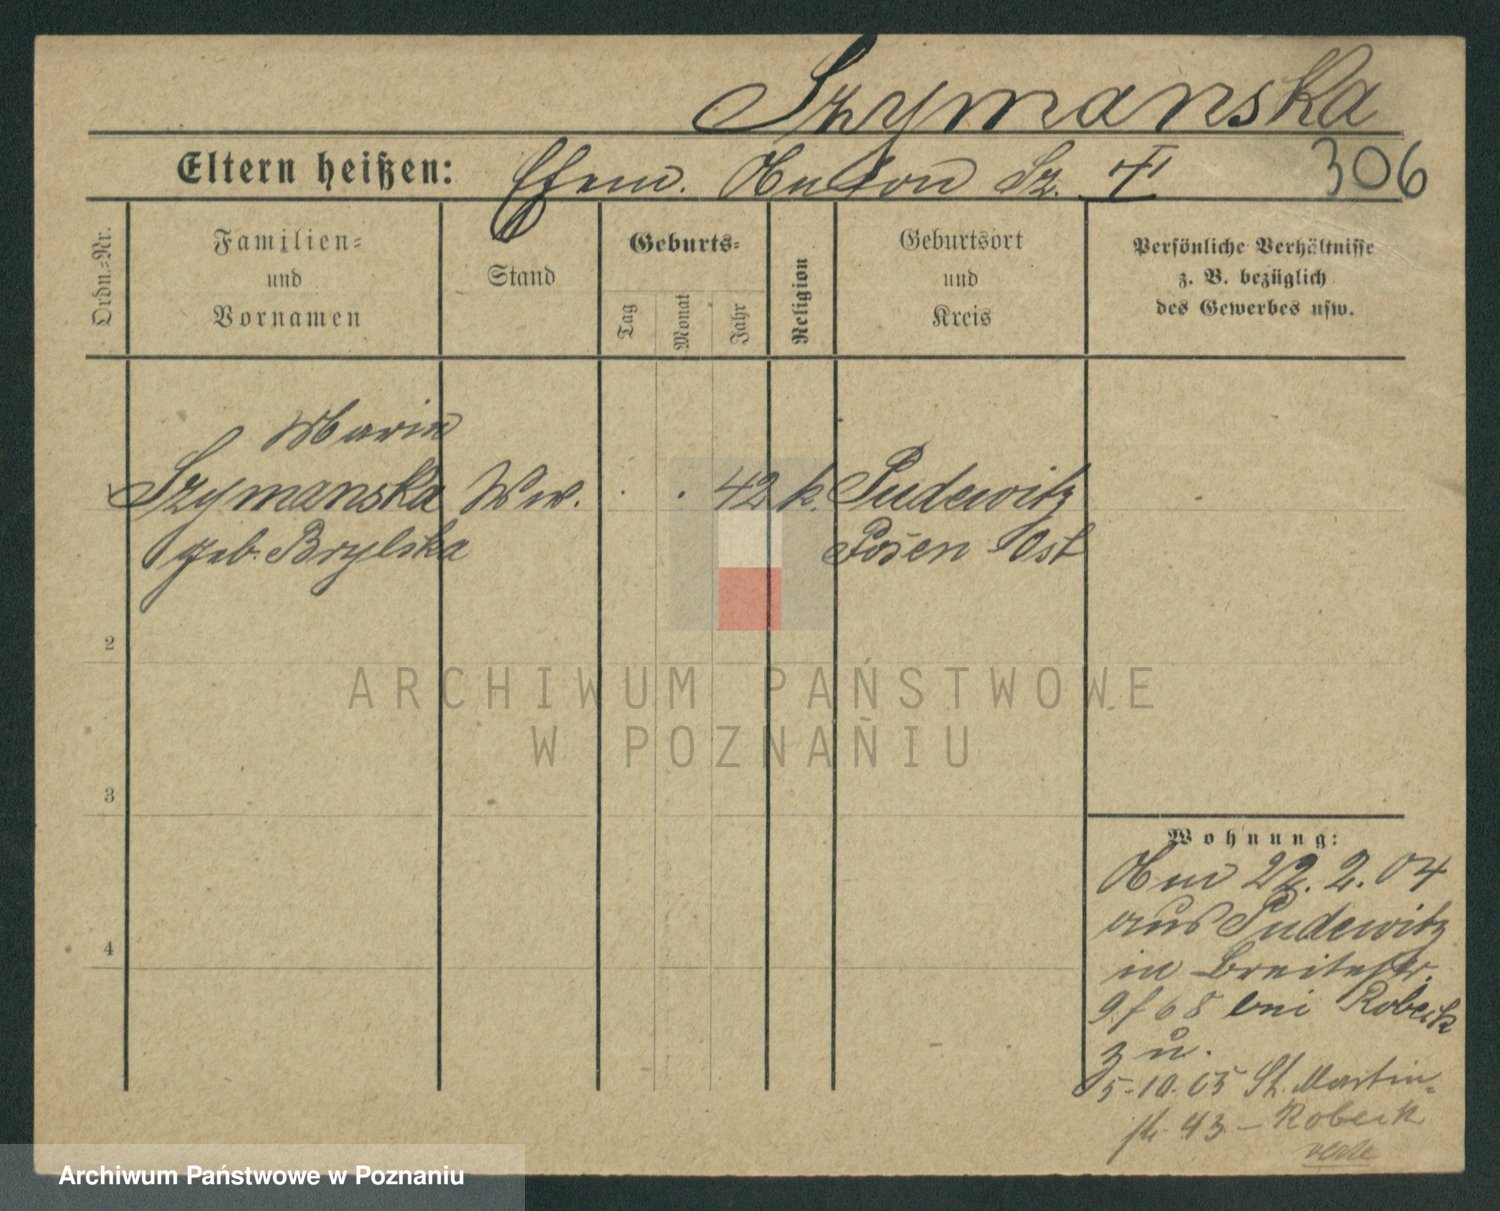 Szymanska
Eltern heißen: Ehem. Anton Sz. †
306
Ordn.-Nr.
Familien-
und
Vornamen
Stand
Geburts-
Tag
Monat
Jahr
Religion
Geburtsort
und
Kreis
Persönliche Verhältnisse
z. B. bezüglich
des Gewerbes usw.
Marie
Szymanska Ww. . . 42 k. Pudewitz
geb. Brylska Posen Ost
2
3
4
Wohnung:
Am 22.2.04
aus Pudewitz
in Breitestr.
bei Robeck
z u.
5.10.05 St. Martin-
str. 43 - Robeck
ARCHIWUM PAŃSTWOWE
W POZNANIU
Archiwum Państwowe w Poznaniu